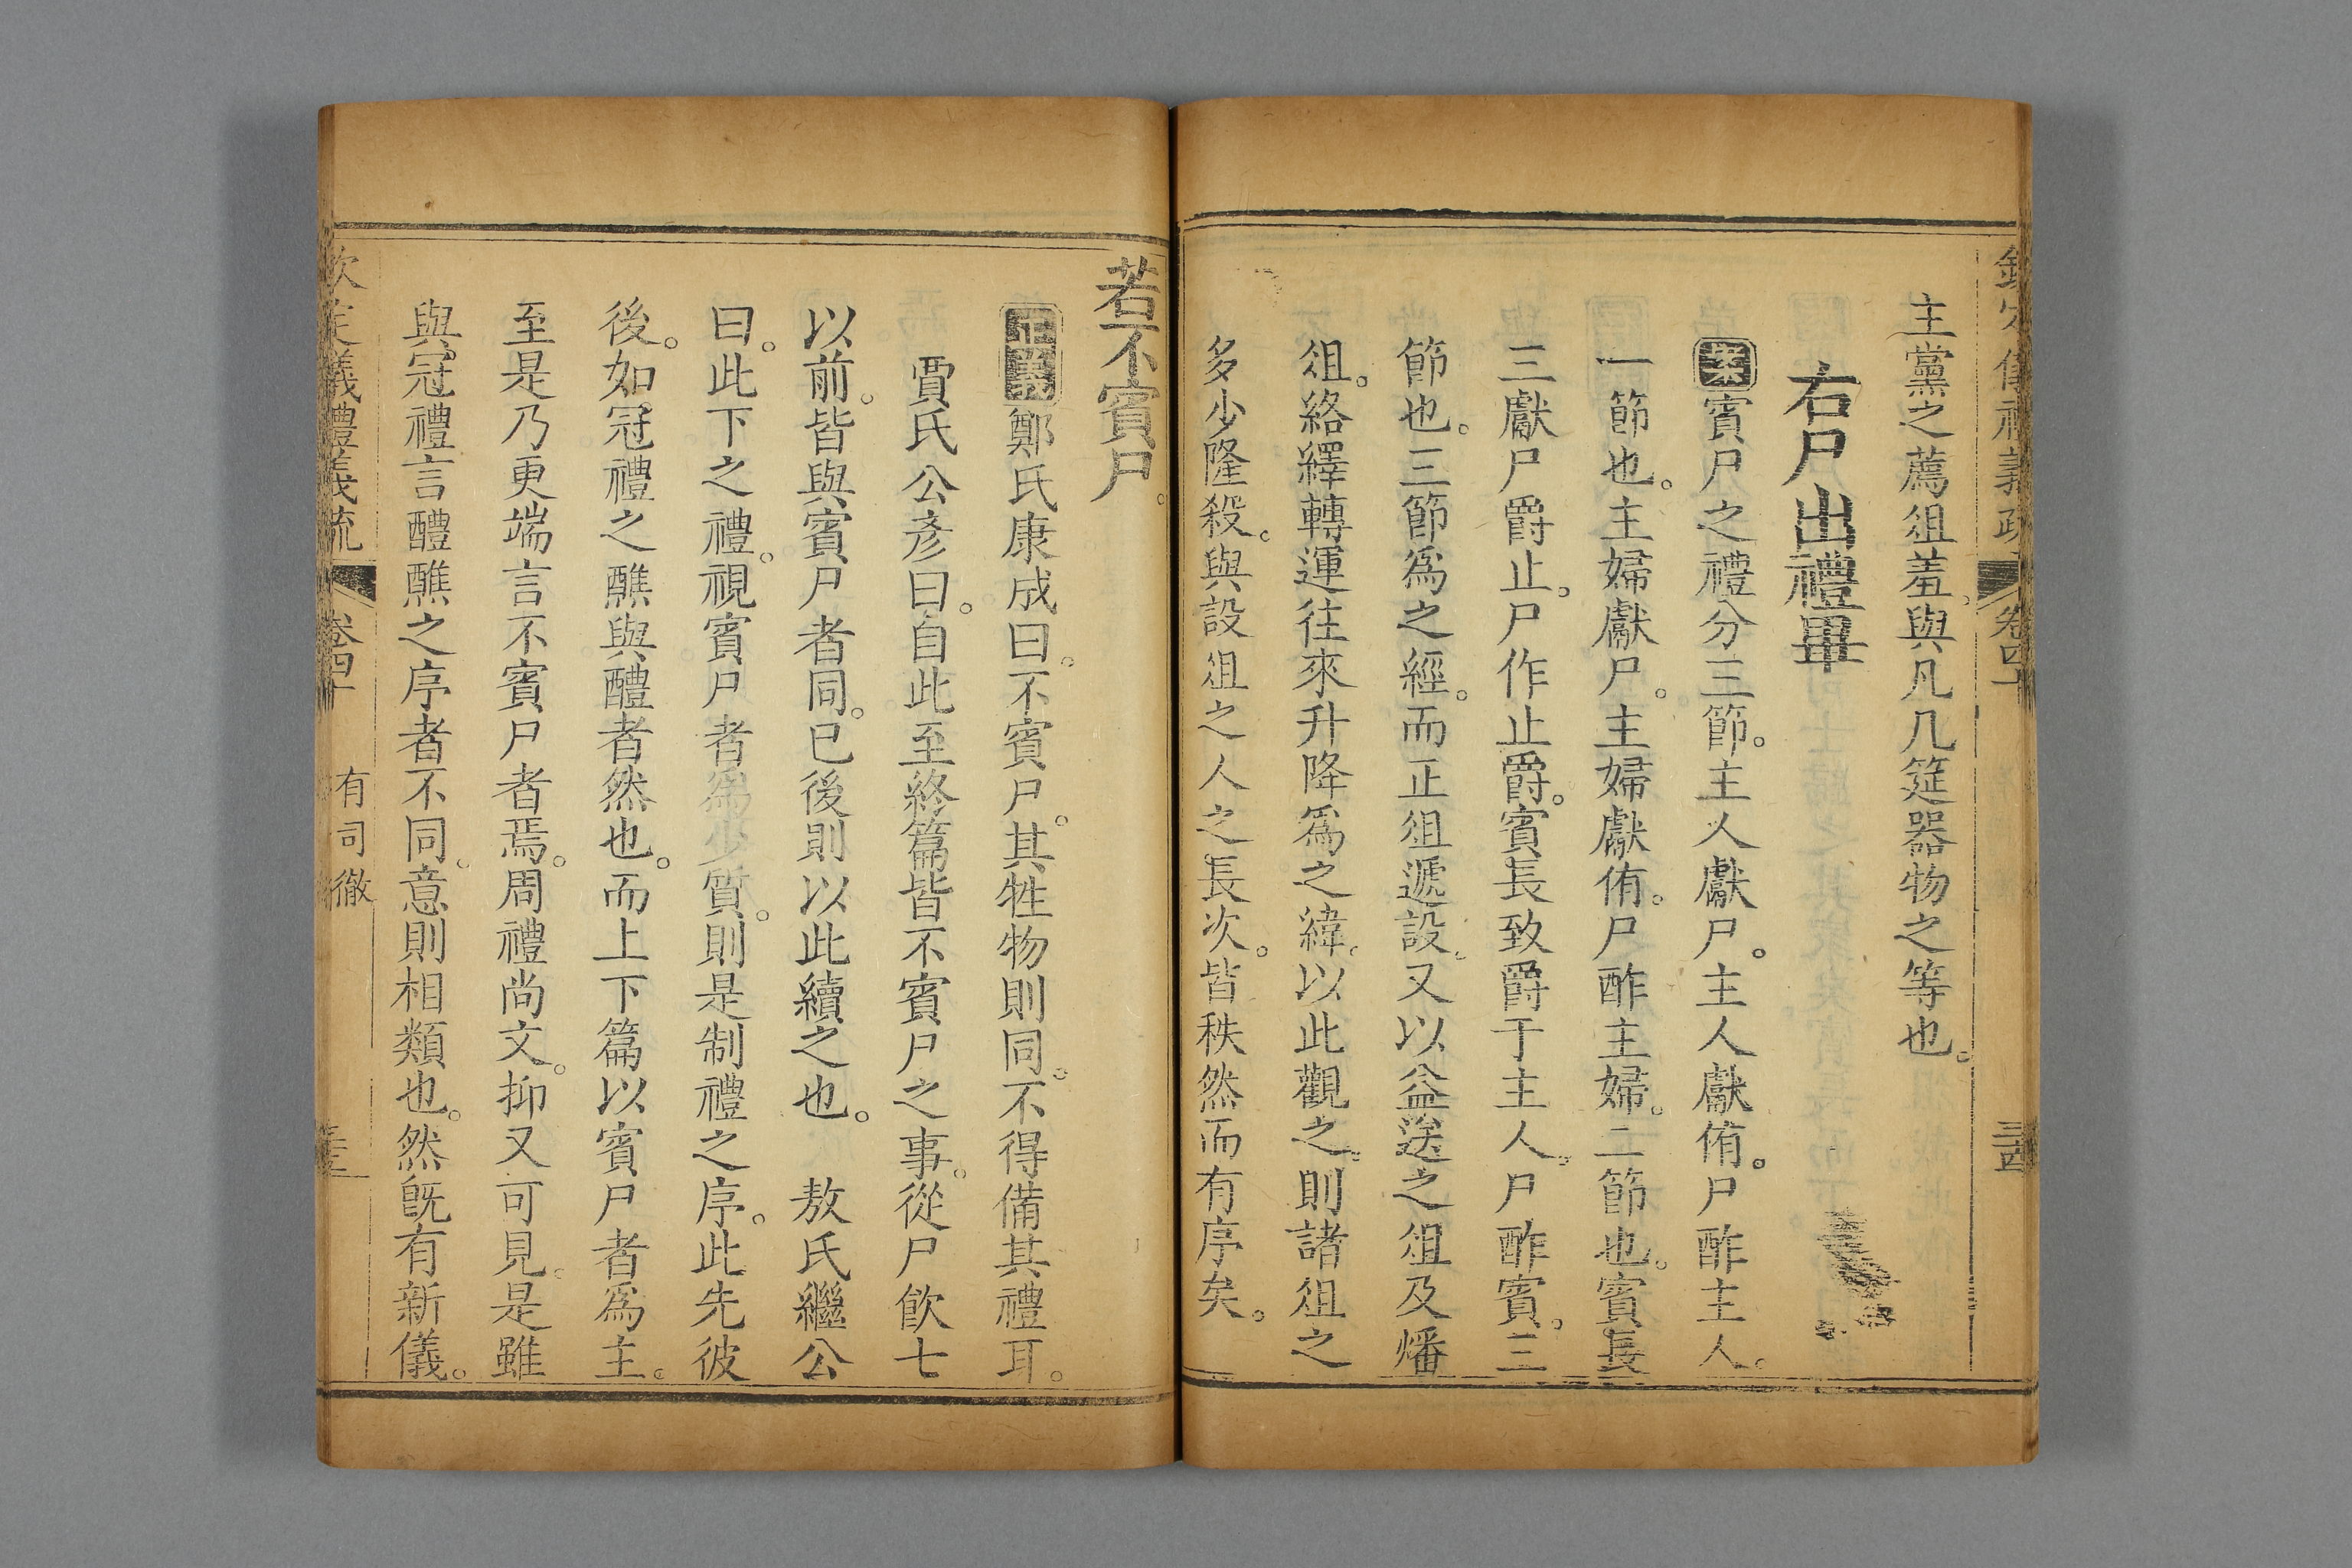 主黨之薦俎羞與凡几筵器物之等也。
右尸出禮畢
案賓尸之禮分三節。主人獻尸。主人獻侑。尸酢主人。
一節也。主婦獻尸。主婦獻侑。尸酢主婦。二節也。賓長
三獻尸爵止。尸作止爵。賓長致爵于主人。尸酢賓。三
節也。三節爲之經。而正俎遞設。又以益送之俎及燔
俎。絡繹轉運往來升降爲之緯。以此觀之。則諸俎之
多少隆殺。與設俎之人之長次。皆秩然而有序矣。
若不賓尸。
正義鄭氏康成曰。不賓尸。其牲物則同。不得備其禮耳。
賈氏公彥曰。自此至終篇皆不賓尸之事。從尸飮七
以前。皆與賓尸者同。已後則以此續之也。 敖氏繼公
曰。此下之禮。視賓尸者爲少質。則是制禮之序。此先彼
後。如冠禮之醮與醴者然也。而上下篇以賓尸者爲主。
至是乃更端言不賓尸者焉。周禮尚文。抑又可見。是雖
與冠禮言醴醮之序者不同。意則相類也。然旣有新儀。
儀禮義疏 卷四十 有司徹